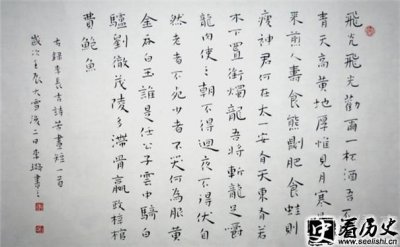 飛光飛光勸爾一杯酒吾不
青天高黄地厚惟見月寒
来煎人壽食熊則肥食蛙則
瘦神君何在太一安有天東有若
木下置銜燭龍吾將斬龍足嚼
龍肉使之朝不得迴夜不得伏自
然老者不死少者不哭何為服黄
金吞白玉誰是任公子雲中騎白
驢劉徹茂陵多滯骨嬴政梓棺
費鮑魚
右錄李長吉詩苦晝短一首
歲次壬辰大雪後二日李書
看历史
www.seelishi.cn